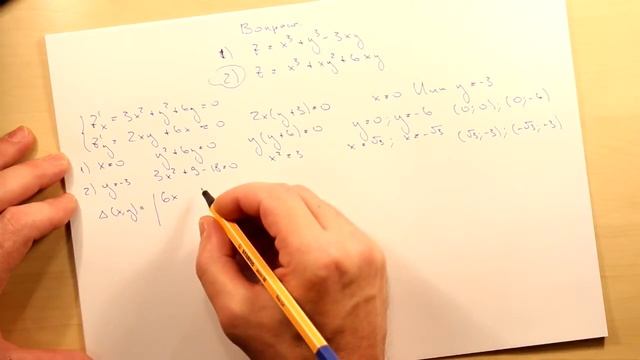 Вопрос
1) z = x³ + y³ - 3xy
2) z = x³ + xy² + 6xy
z'x = 3x² + y² + 6y = 0
z'y = 2xy + 6x = 0 2x(y+3) = 0 x = 0 Или y = -3
1) x = 0 y² + 6y = 0 y(y+6) = 0 y = 0; y = -6 (0; 0); (0; -6)
2) y = -3 3x² + 9 - 18 = 0 x² = 3 x = √3; x = -√3 (√3; -3); (-√3; -3)
Δ(x,y) = | 6x